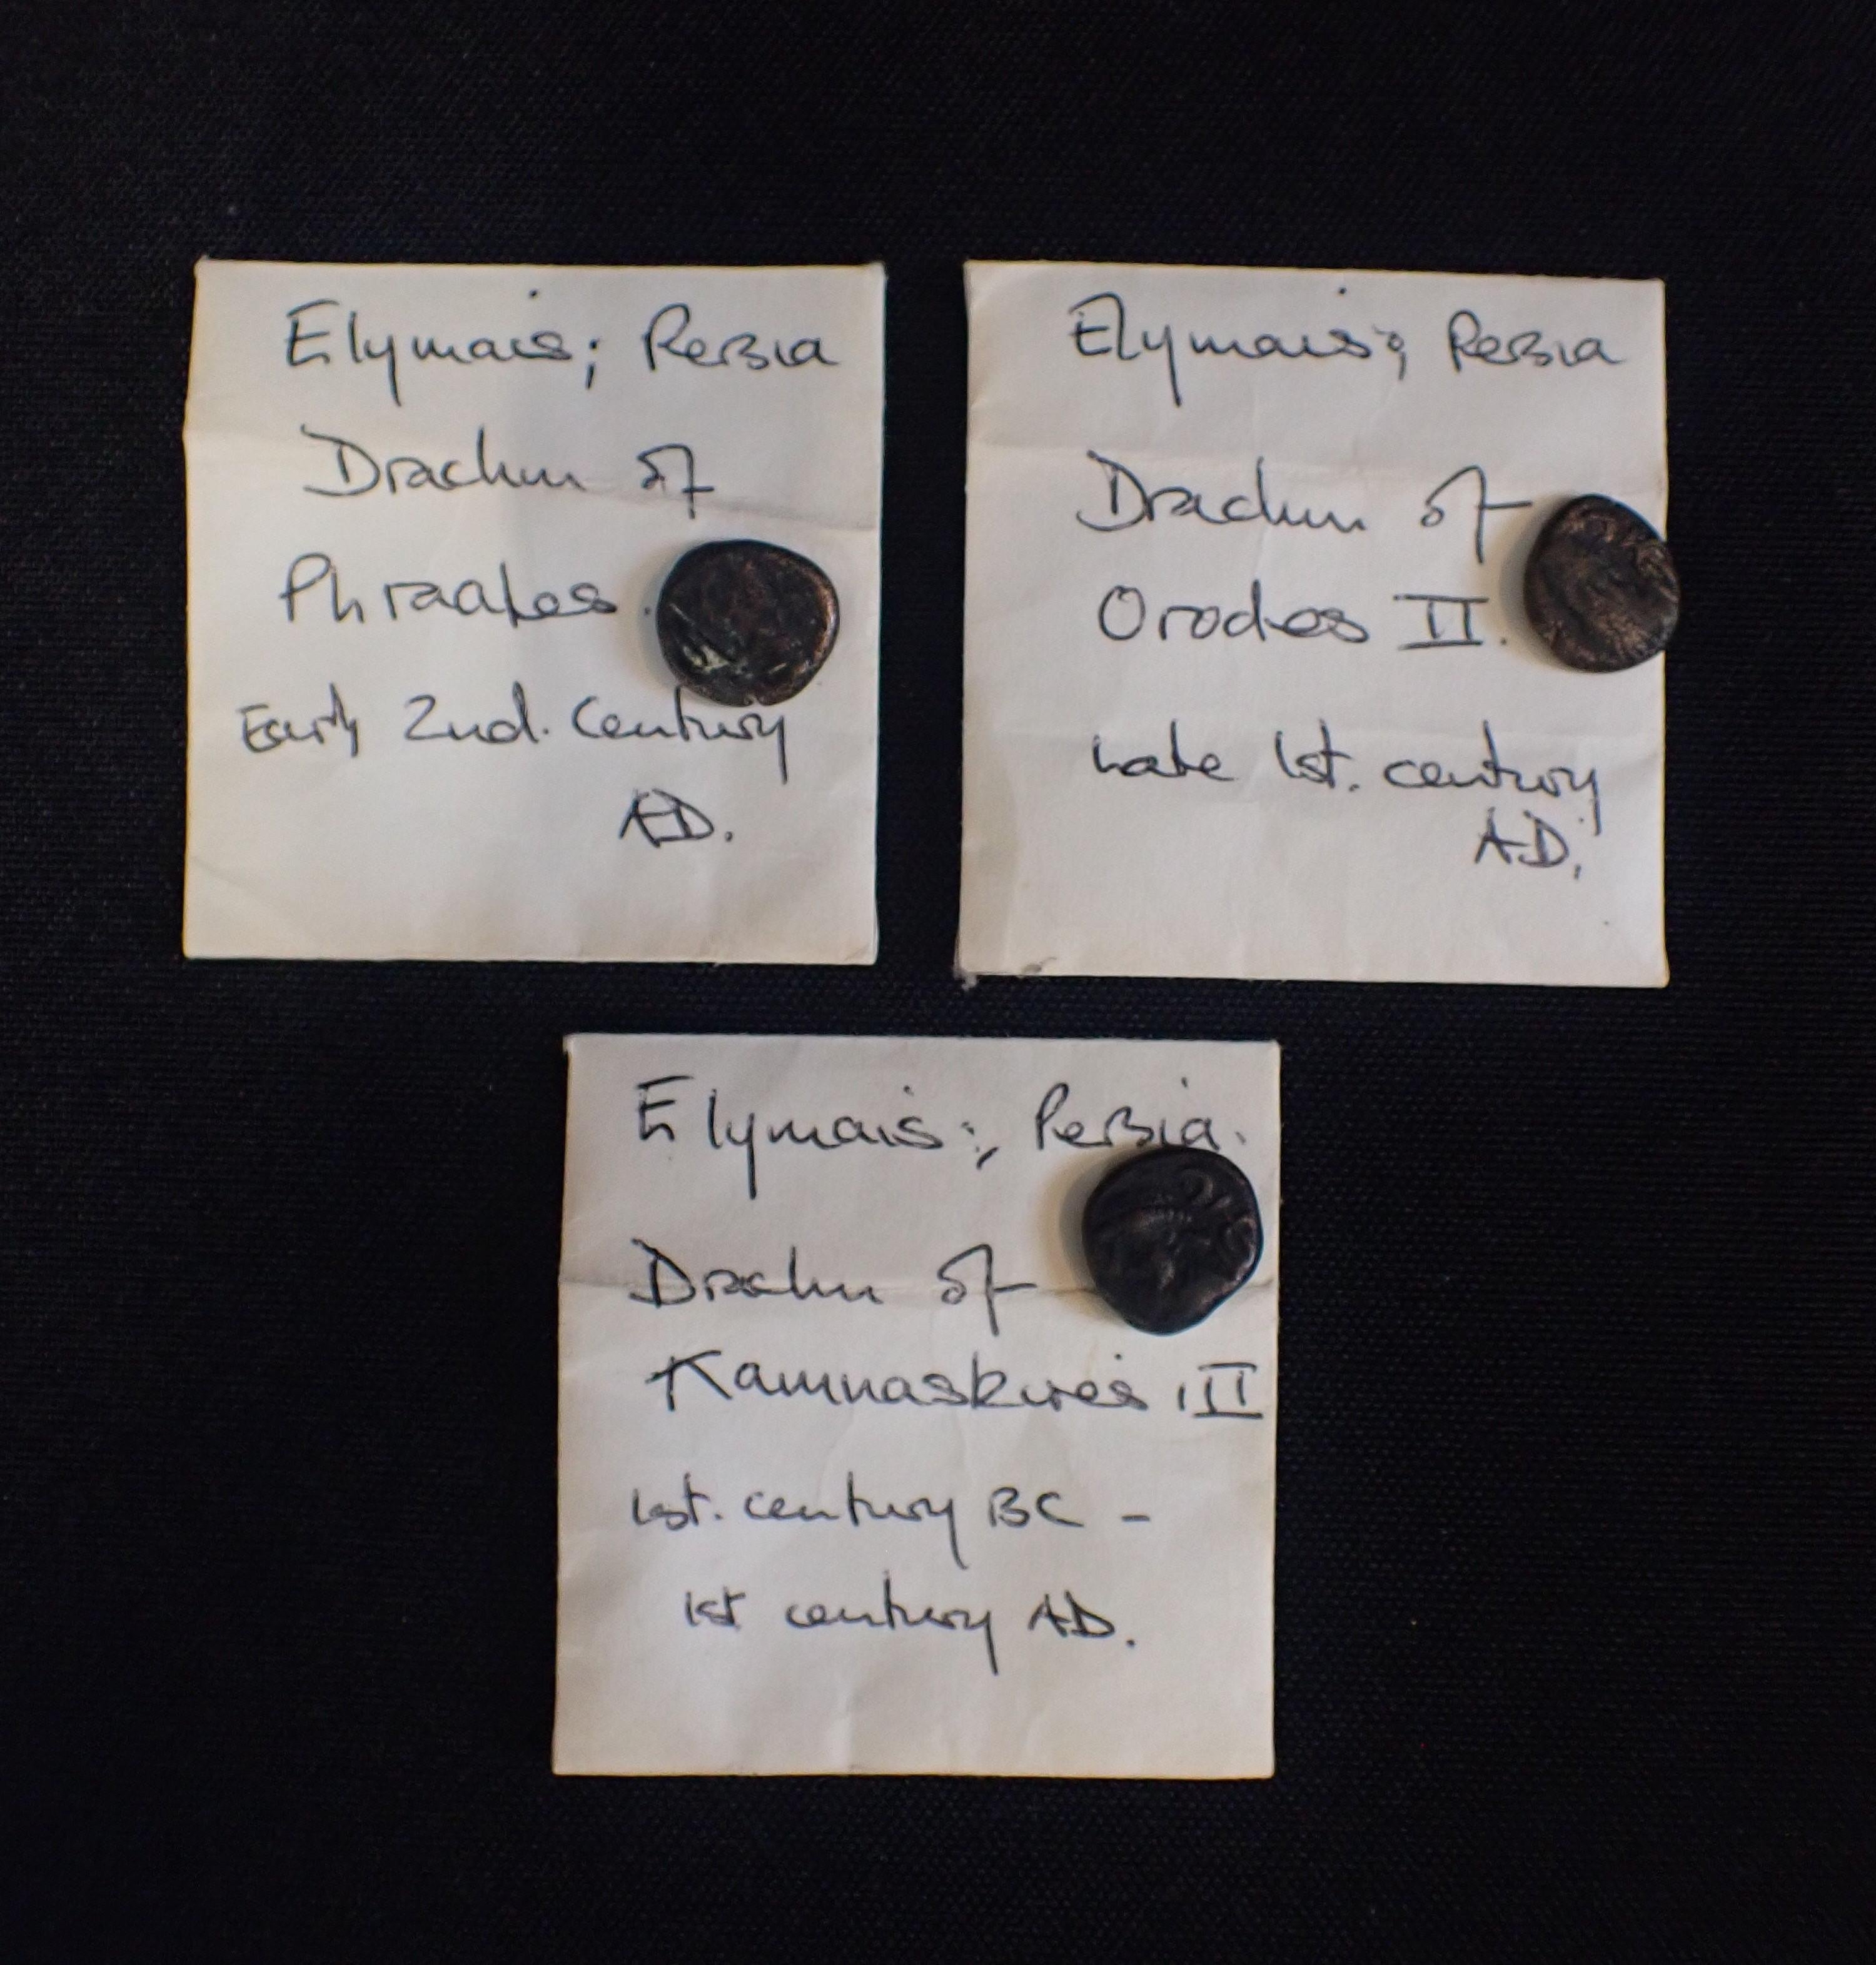 Elymais; Persia
Drachm of
Phraates.
Early 2nd. Century
AD.
Elymais; Persia
Drachm of
Orodes II.
Late 1st. century
A.D.
Elymais; Persia.
Drachm of
Kamnaskires III
1st. century BC -
1st century AD.